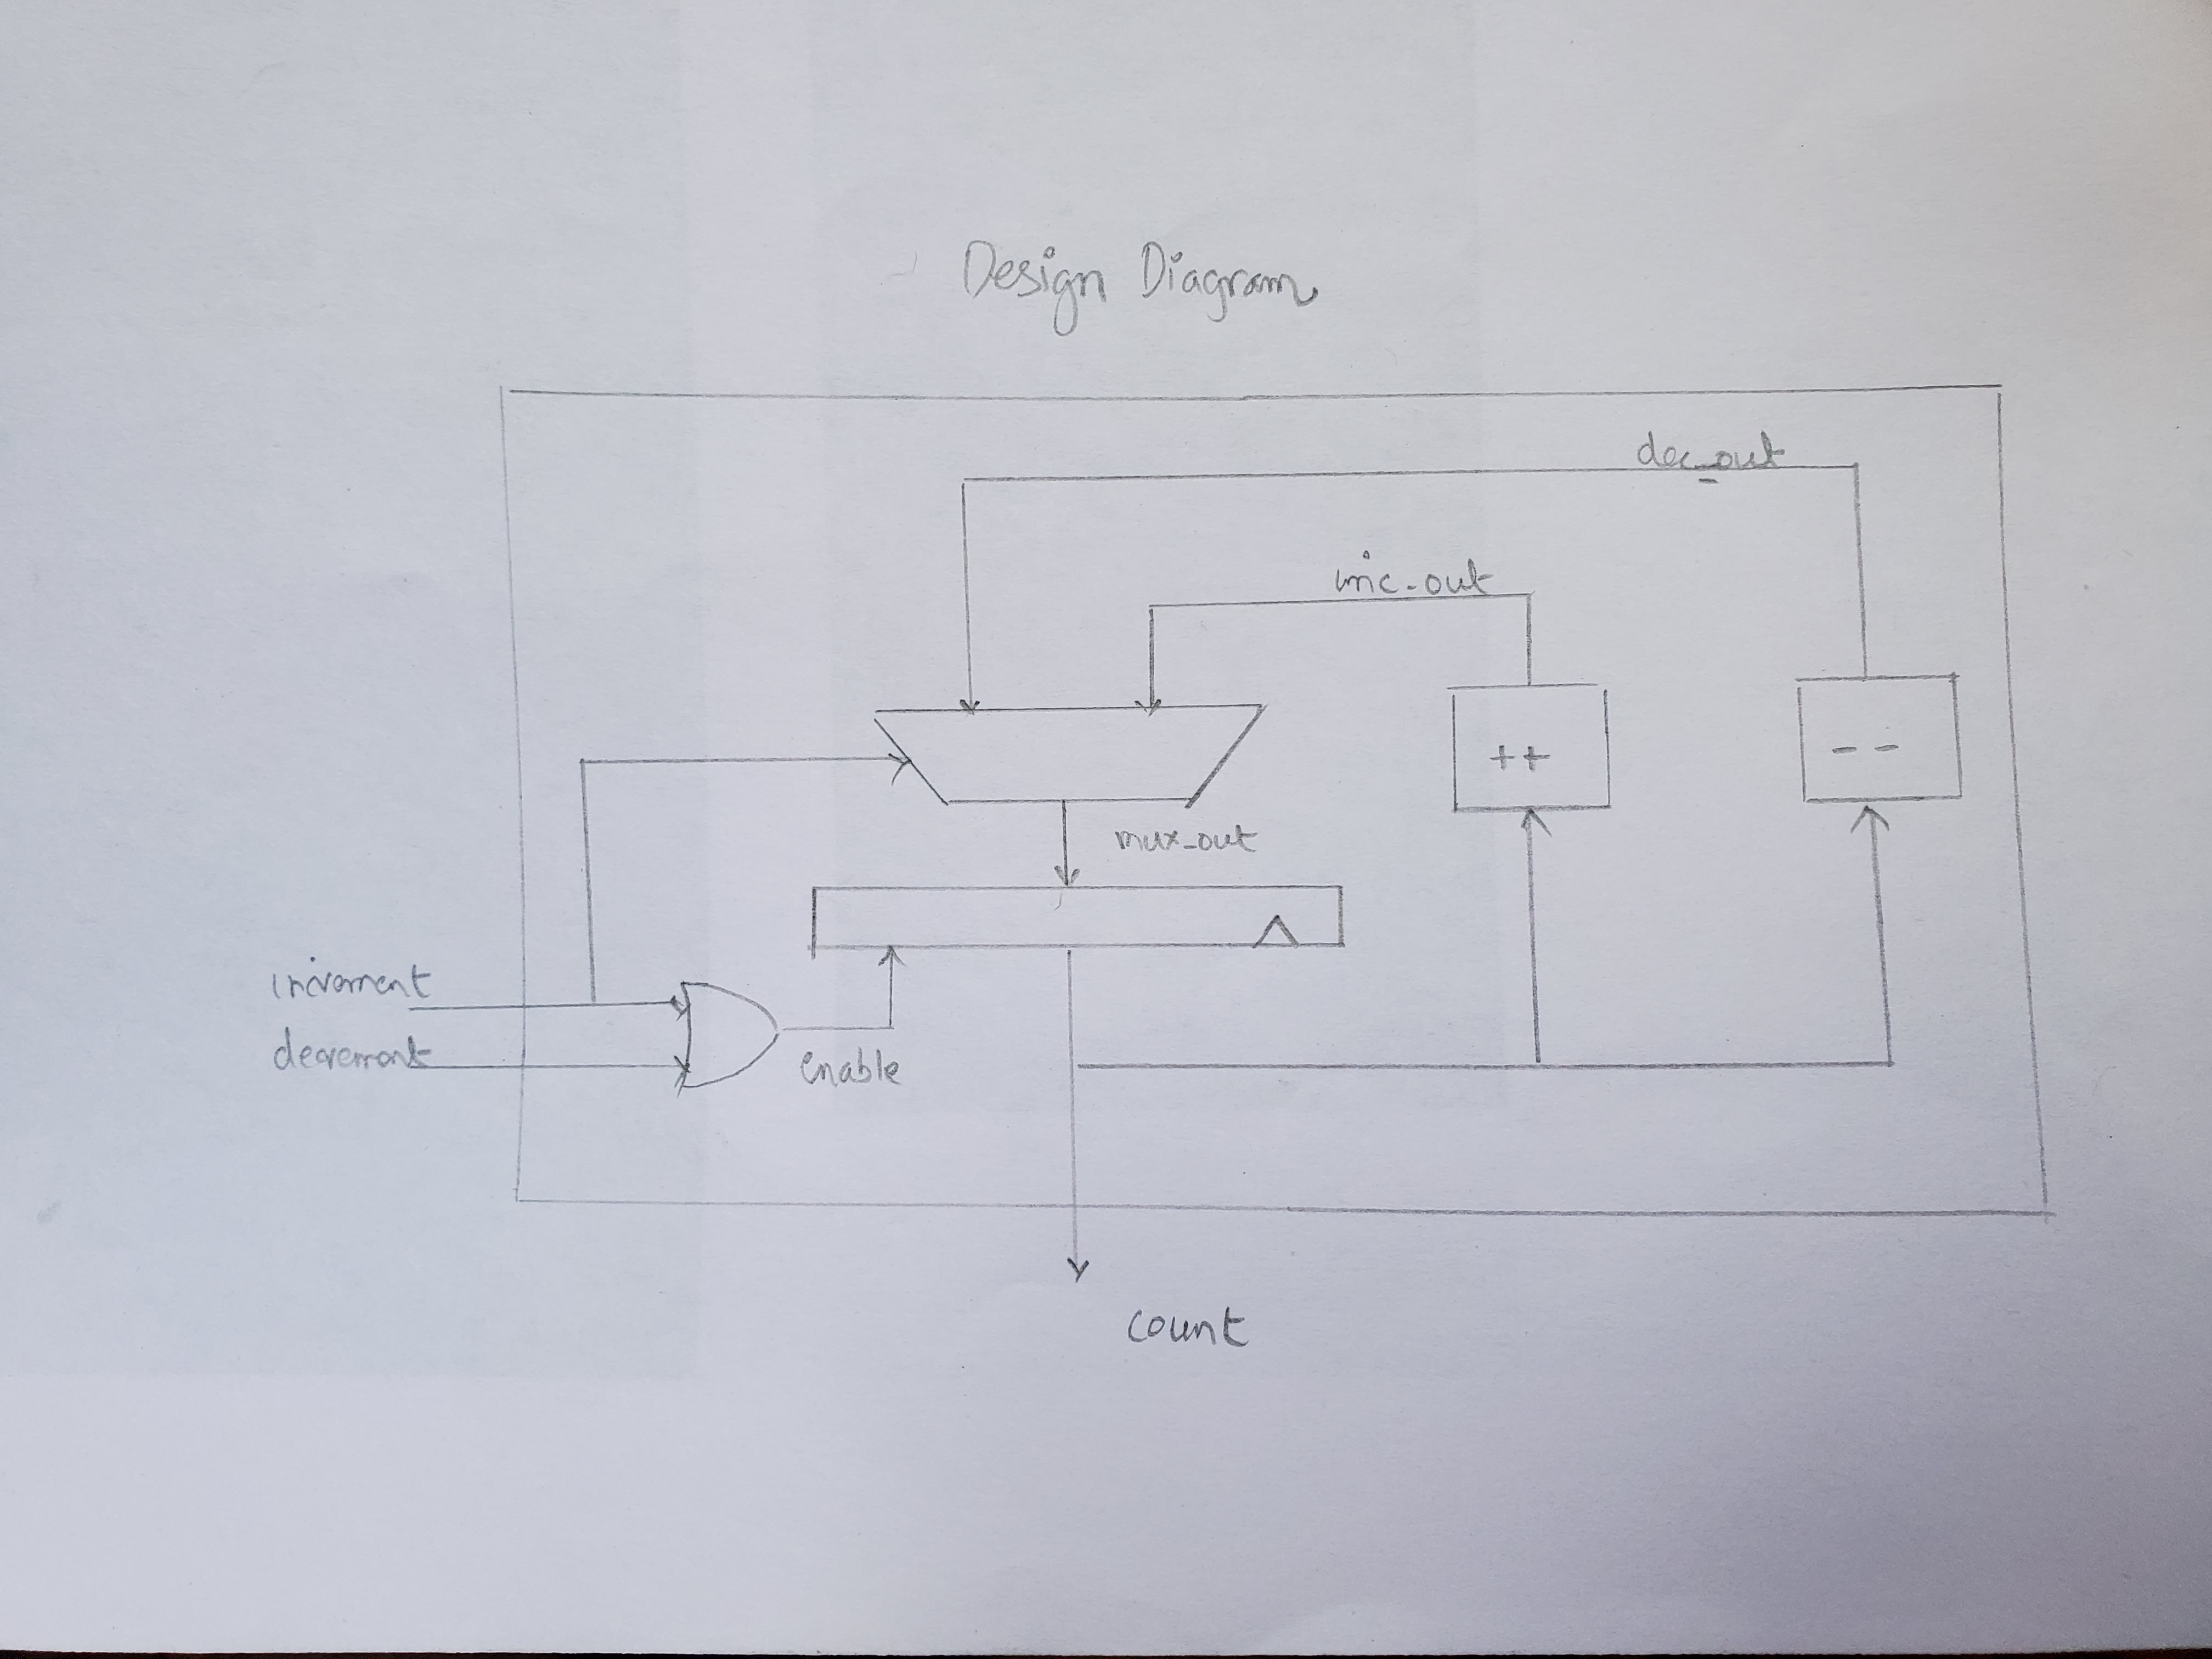 Design Diagram
dec_out
inc_out
++
--
mux_out
increment
decrement
enable
count